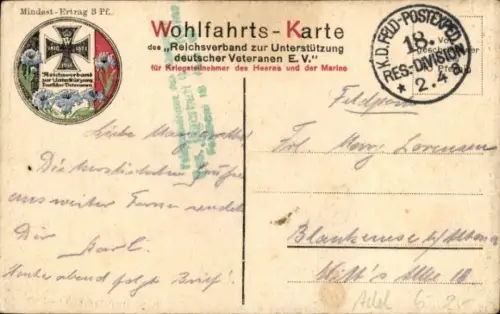 Mindest-Ertrag 3 Pf.
Wohlfahrts-Karte
des „Reichsverband zur Unterstützung
deutscher Veteranen E. V."
für Kriegsteilnehmer des Heeres und der Marine
Reichsverband
zur Unterstützung
Deutscher Veteranen
K.D. FELD-POSTEXPED.
18.
RES.-DIVISION
2. 4.
Feldpost
Liebe
Die herzlichsten Grüße
aus weiter Ferne sendet
Dir Karl.
Heute abend folgt Brief!
Frl. Marg. Lorensen
Blankenese b/Altona
Witt's Allee